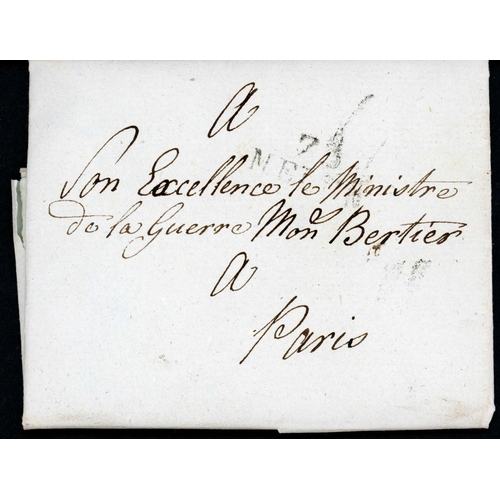 A
Son Excellence le Ministre
de la Guerre Mon Bertier
A
Paris